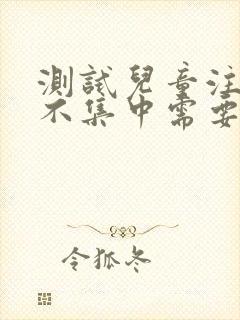 測試兒童注
不集中需要
令狐冬